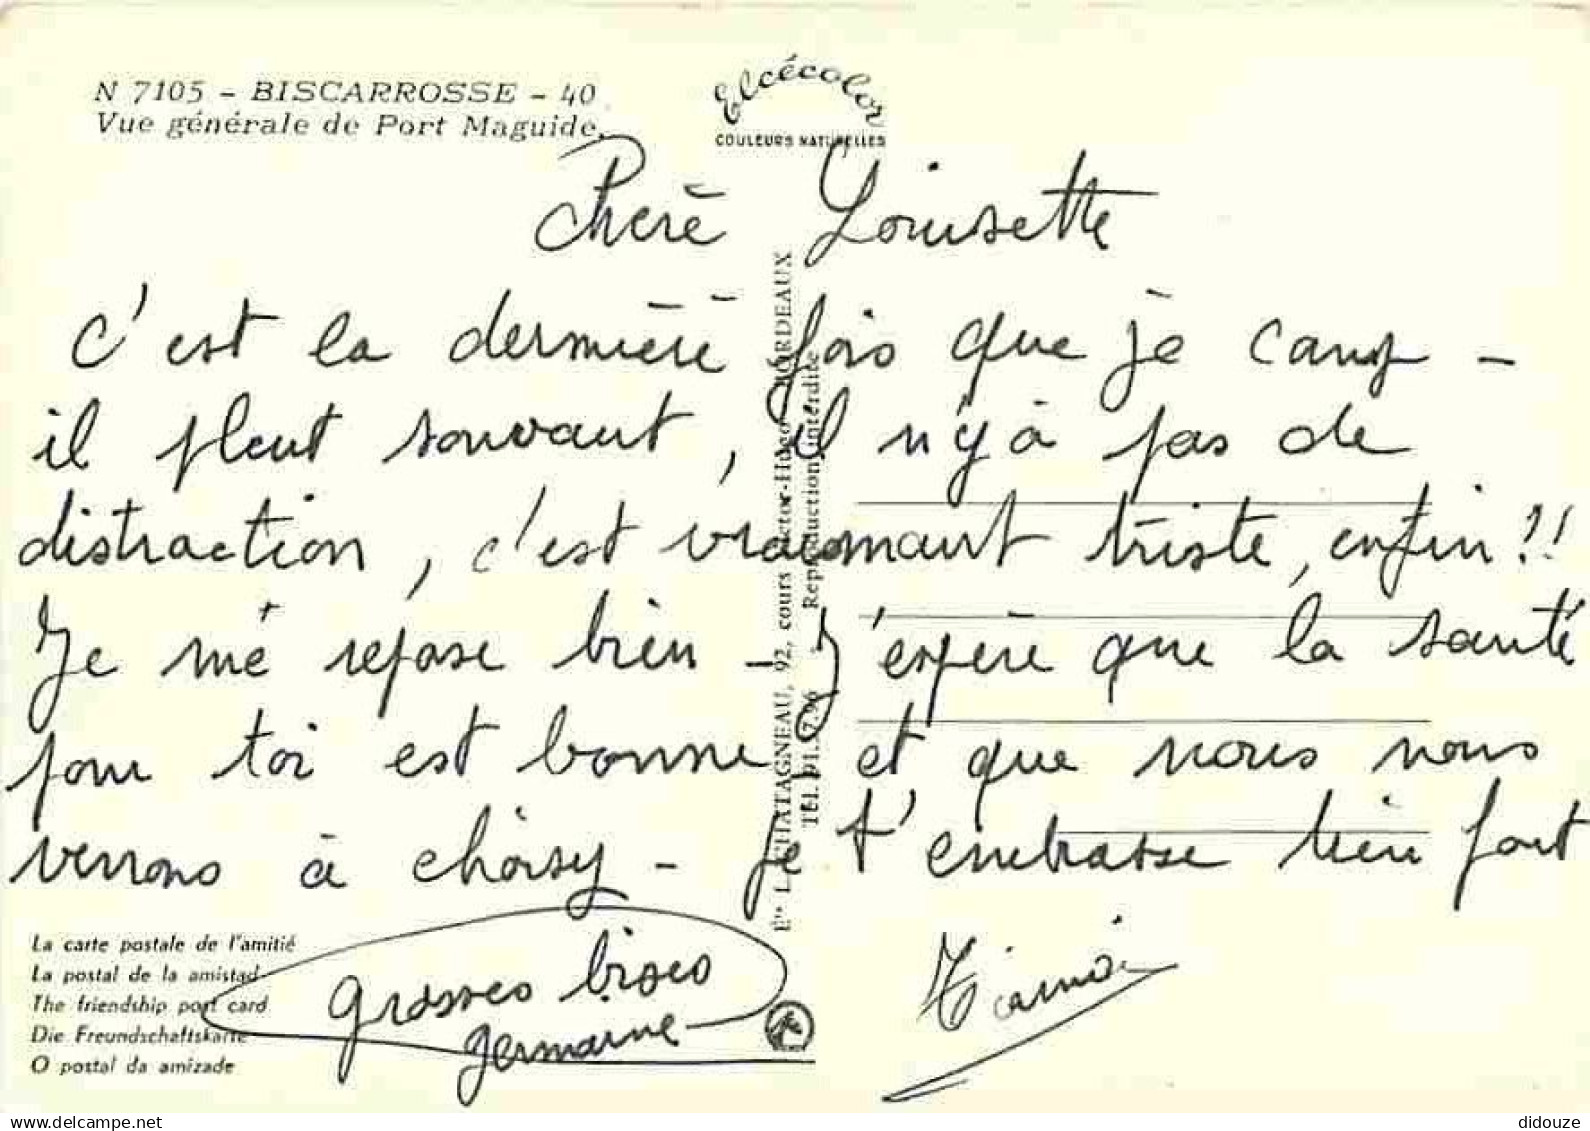 N 7105 - BISCARROSSE - 40
Vue générale de Port Maguide.
Elcécolor
COULEURS NATURELLES
Chère Louisette
C'est la dernière fois que je camp -
il pleut souvant, il n'y à pas de
distraction, c'est vraimant triste, enfin!!
Je me repose bien - J'espère que la santé
pour toi est bonne et que nous nous
verrons à choisy - je t'embrasse bien fort
grosses bises
germaine
La carte postale de l'amitié
La postal de la amistad
The friendship port card
Die Freundschaftskarte
O postal da amizade
Ets L. CHATAGNEAU, 92, cours Victor-Hugo - BORDEAUX
Reproduction interdite
delcampe.net
didouze